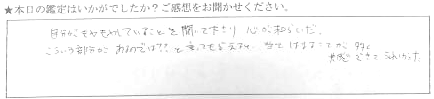 ★本日の鑑定はいかがでしたか？ご感想をお聞かせください。
自分がもやもやしていることを聞いて下さり 心が和らいだ。
こういう部分が あるのでは?? と言ってもらえて、当てはまることが多々
共感できてうれしかった